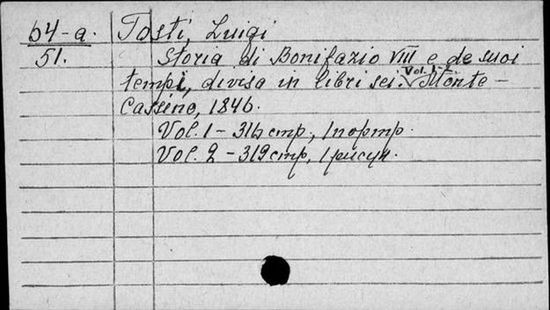 64-а. Tosti, Luigi
51. Storia di Bonifazio VIII e de suoi
tempi, divisa in libri sei. Vol. 1-2. Monte-
Cassino, 1846.
Vol. 1 - 316 стр., 1 портр.
Vol. 2 - 319 стр., 1 рисун.